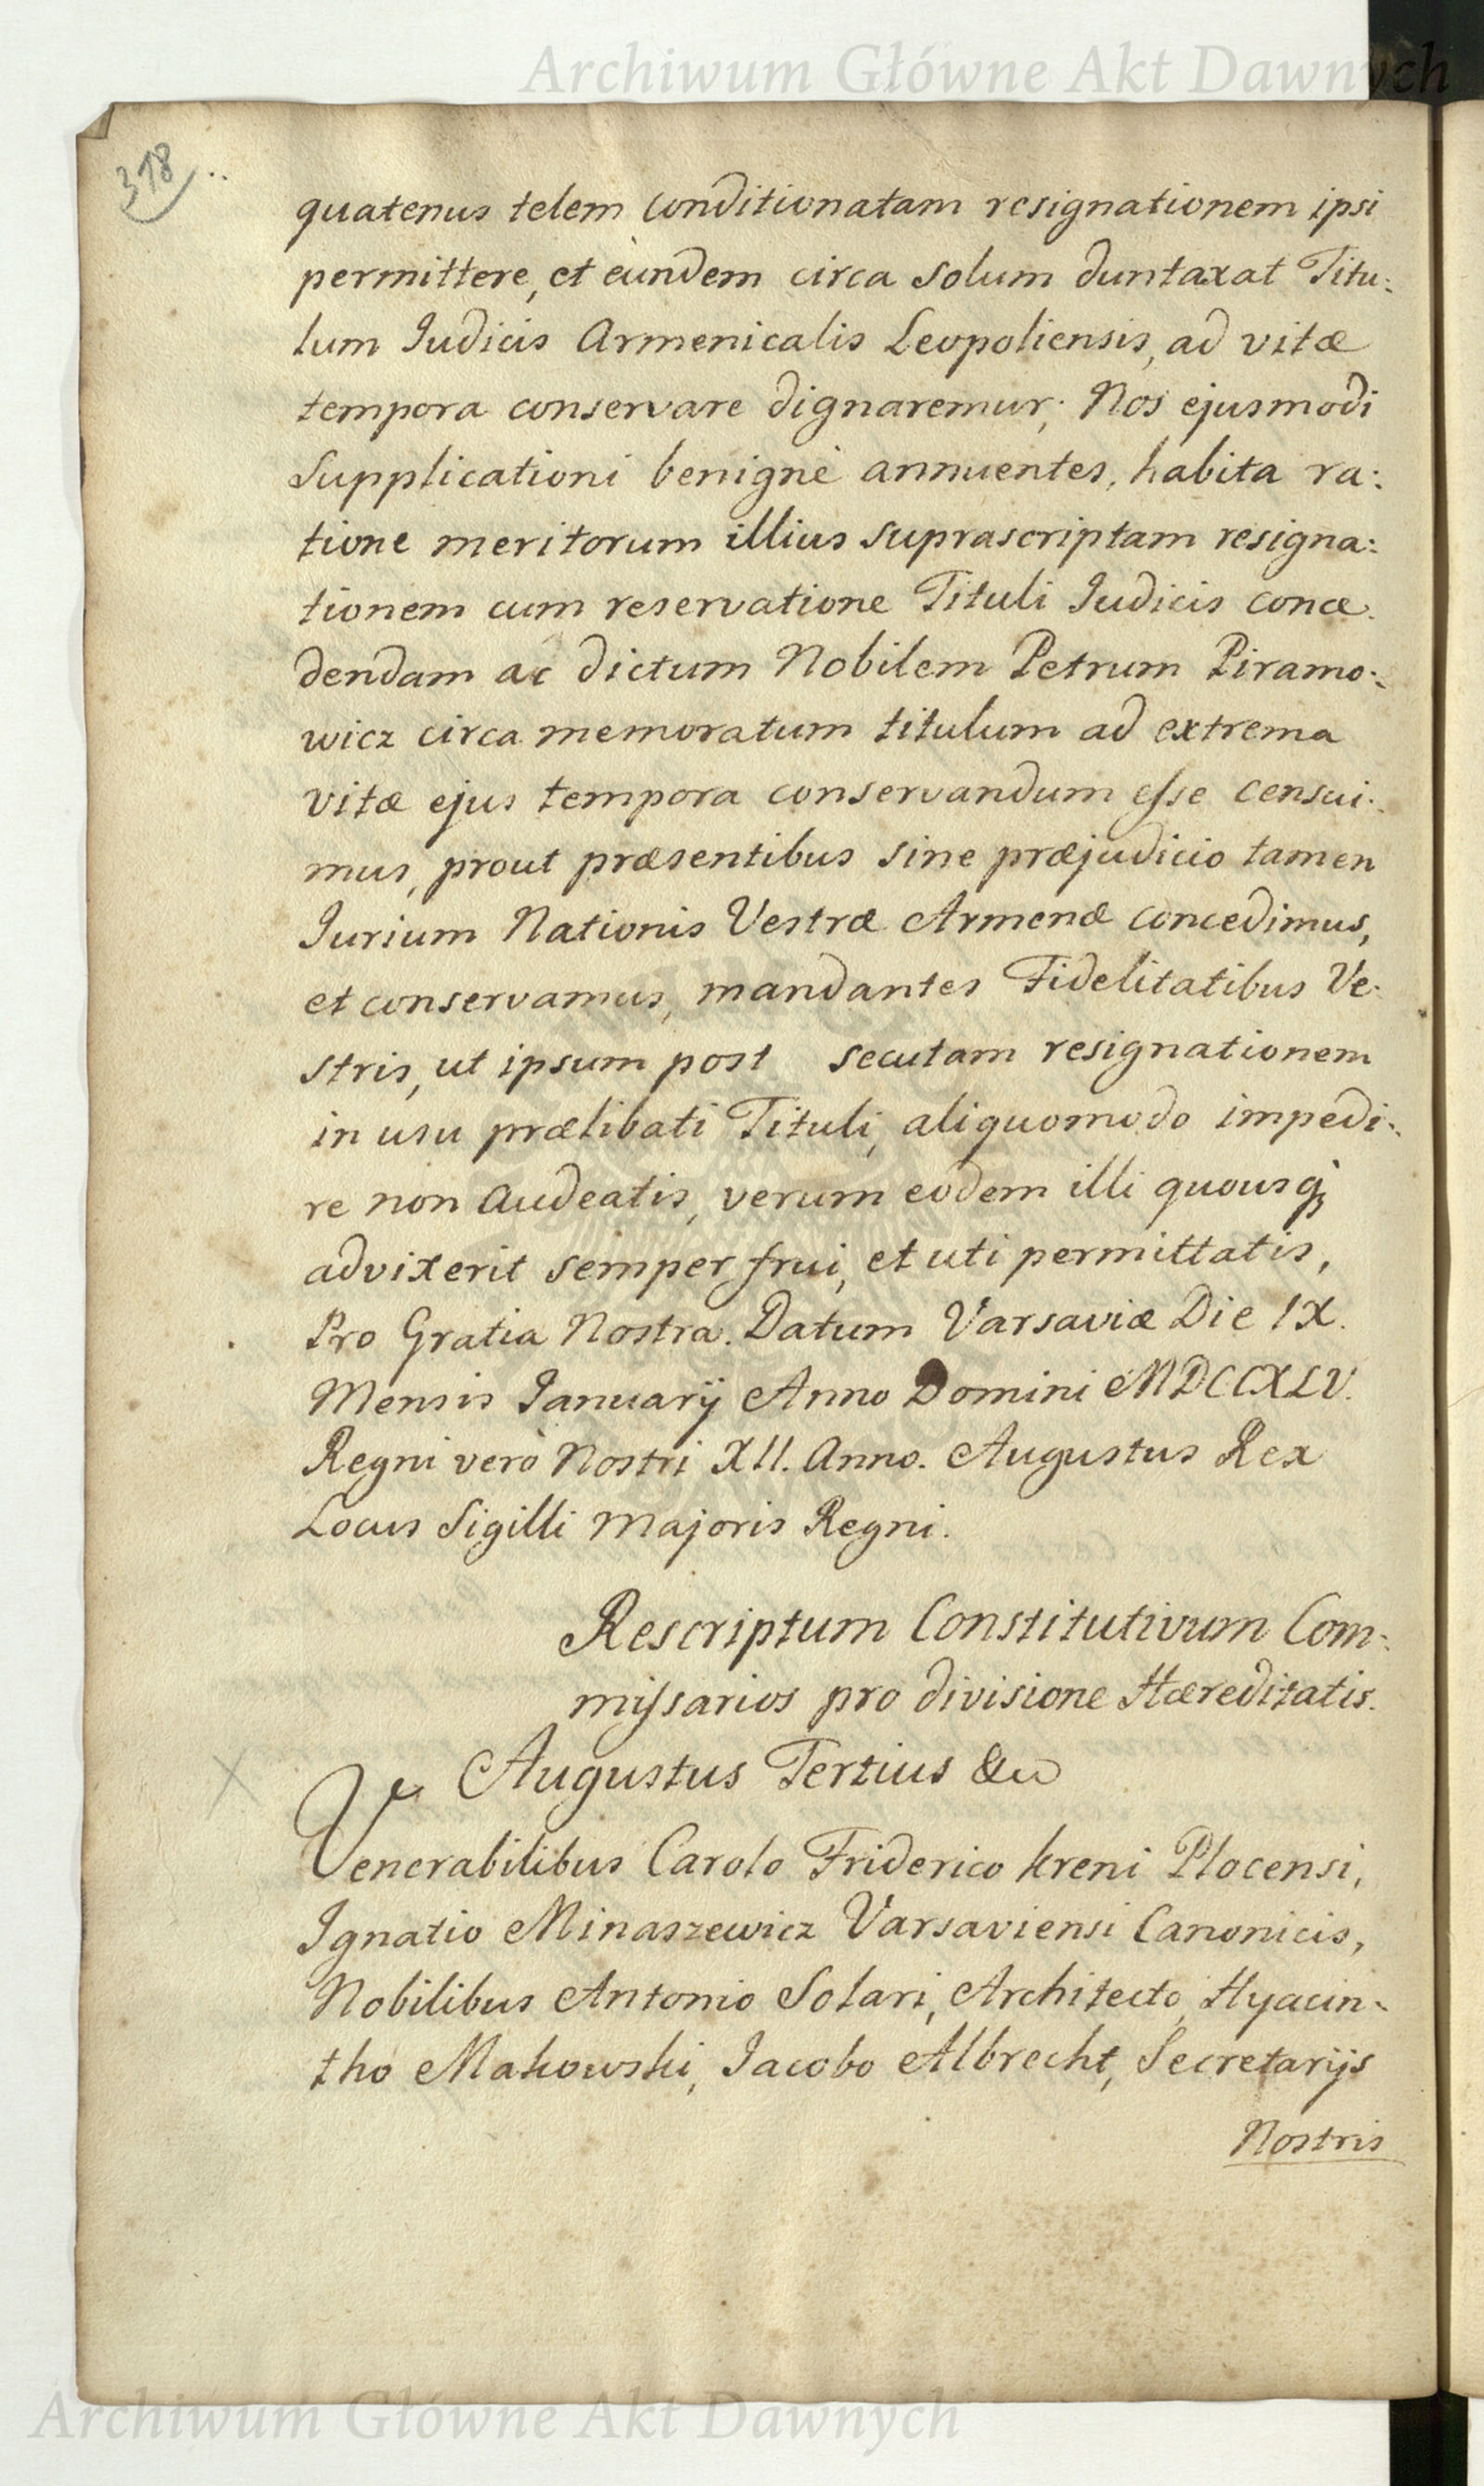 Archiwum Główne Akt Dawnych
318
quatenus telem conditionatam resignationem ipsi
permittere, et eundem circa solum duntaxat Titu:
lum Judicis Armenicalis Leopoliensis, ad vitæ
tempora conservare dignaremur; Nos ejusmodi
Supplicationi benignè annuentes, habita ra:
tione meritorum illius suprascriptam resigna:
tionem cum reservatione Tituli Judicis conce
dendam ac dictum Nobilem Petrum Piramo:
wicz circa memoratum titulum ad extrema
vitæ ejus tempora conservandum esse censui:
mus, prout præsentibus sine præjudicio tamen
Jurium Nationis Vestræ Armenæ concedimus,
et conservamus, mandantes Fidelitatibus Ve:
stris, ut ipsum post secutam resignationem
in usu prælibati Tituli, aliquomodo impedi:
re non audeatis, verum eodem illi quousq;
advixerit semper frui, et uti permittatis,
Pro Gratia Nostra. Datum Varsaviæ Die IX.
Mensis Januarij Anno Domini MDCCXLV.
Regni verò Nostri XII. Anno. Augustus Rex
Locus Sigilli Majoris Regni.
Rescriptum Constitutivum Com:
missarios pro divisione Hæreditatis.
Augustus Tertius &c
Venerabilibus Carolo Friderico Kreni Plocensi,
Ignatio Minaszewicz Varsaviensi Canonicis,
Nobilibus Antonio Solari, Architecto, Hyacin:
tho Makowski, Jacobo Albrecht, Secretarijs
Nostris
Archiwum Główne Akt Dawnych